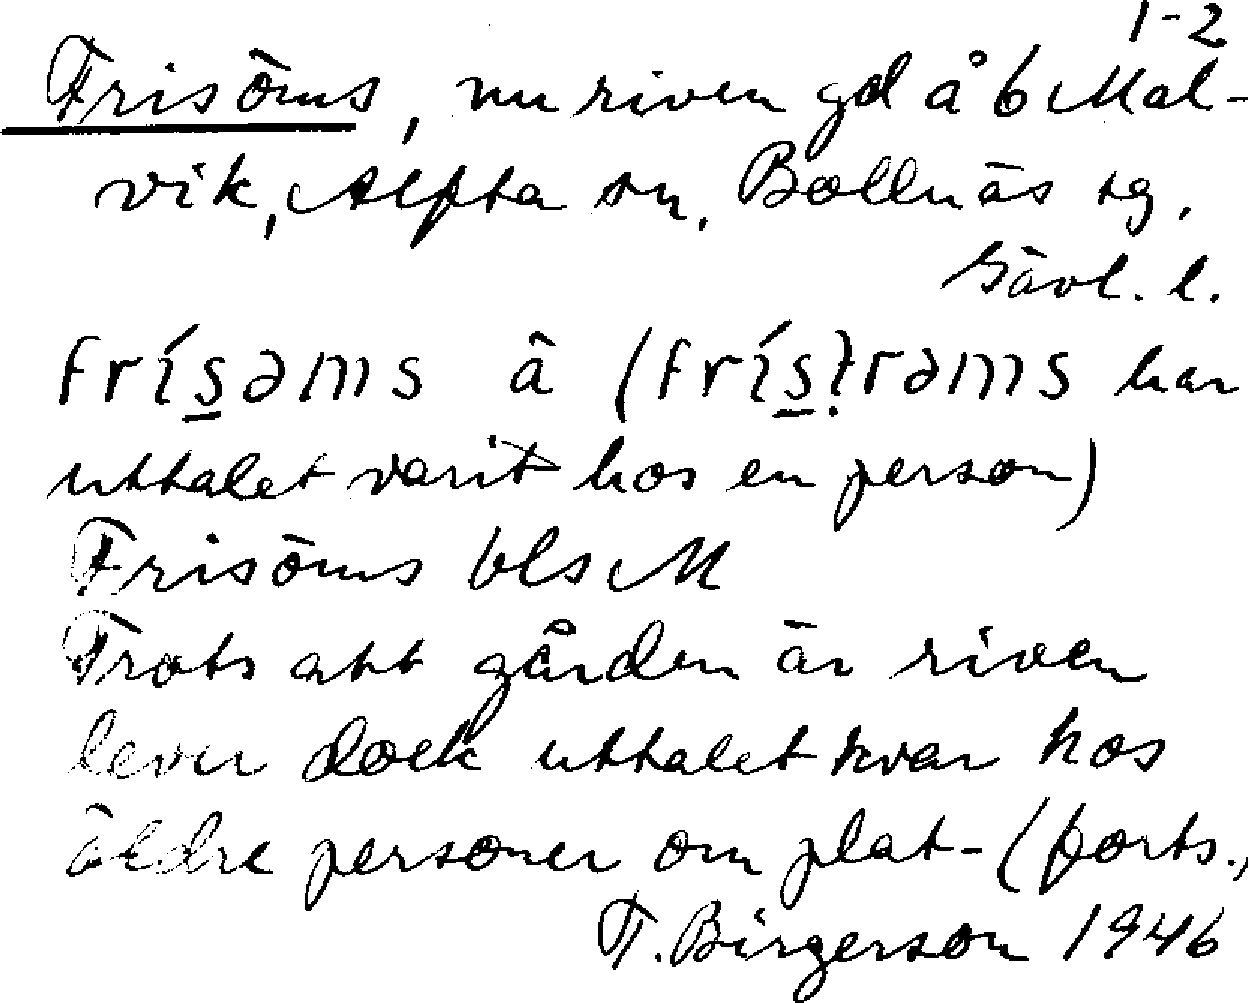 1-2
Frisöms, nu riven gd å 6 Mal-
vik, Alfta sn, Bollnäs tg,
Gävl. l.
frı́s̲əms â (frı́s̲ṭrəms har
uttalet varit hos en person)
Frisöms bls M
Trots att gården är riven
lever dock uttalet kvar hos
äldre personer om plat- (forts.,
T. Birgerson 1946